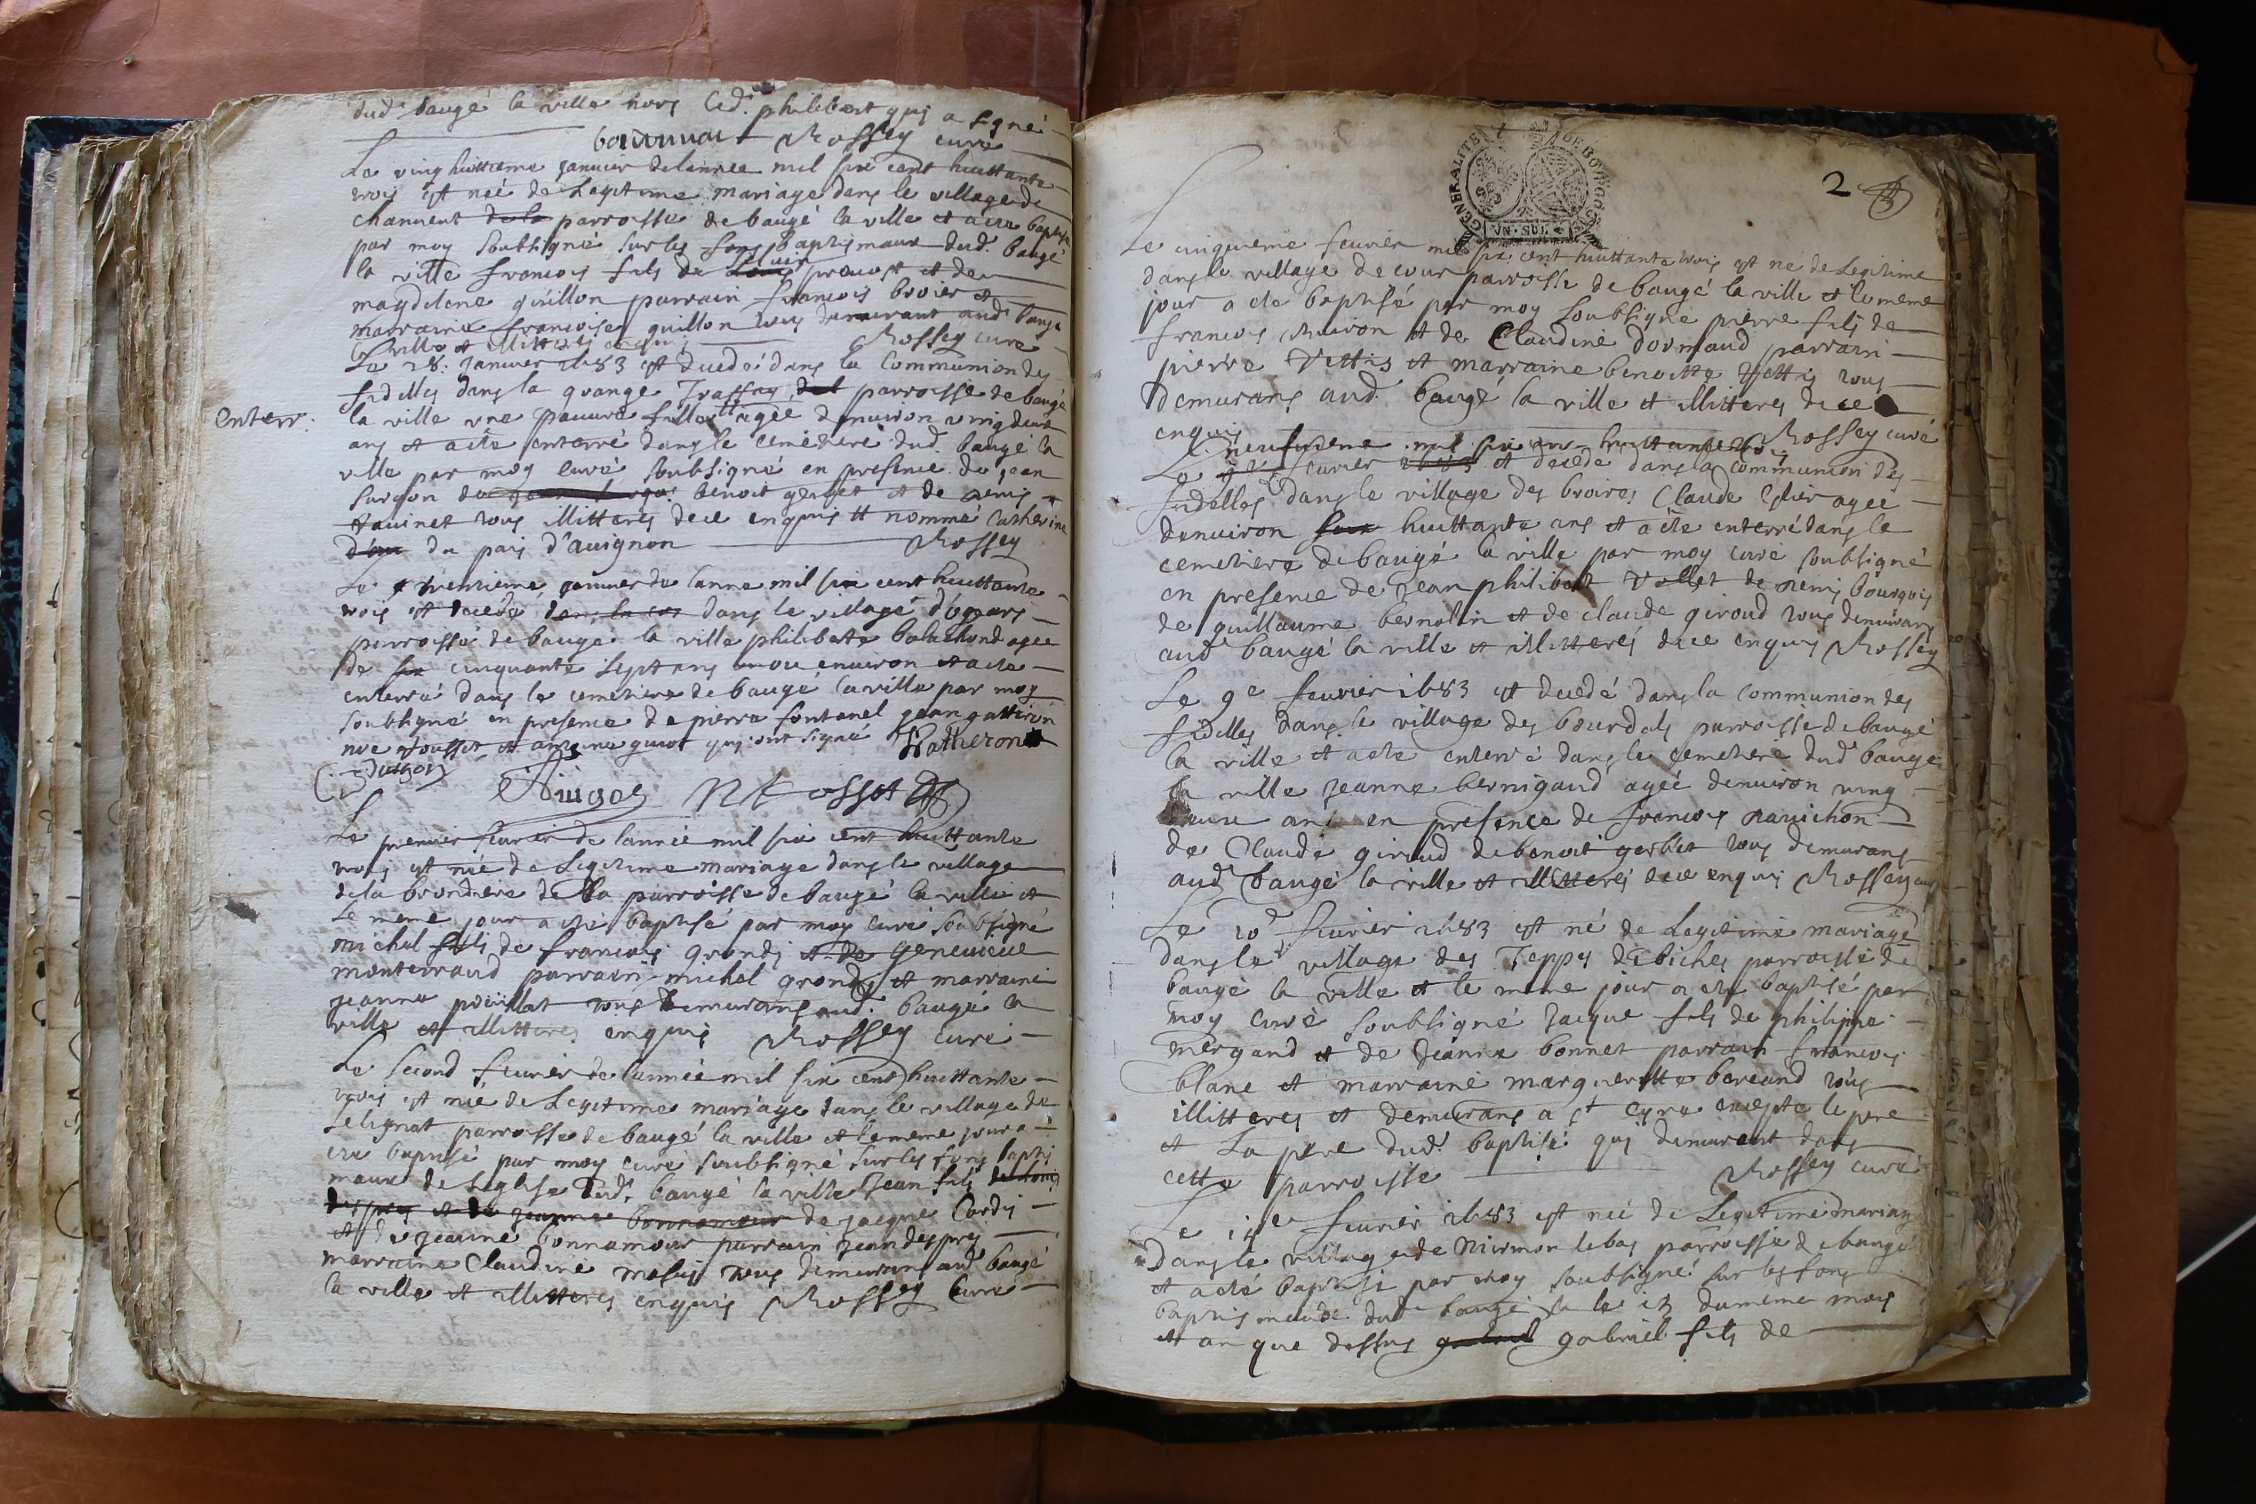 dud. baugé la ville hors led. philibert qui a signé
Rossey curé
Le ving huittieme janvier de lannée mil six cent huittante
trois est neé de Legitime mariage dans le village de
chanvent de la parroisse de baugé la ville et a eté baptisé
par moy soubsigné sur les fons baptismaux dud. baugé
la ville francois fils de prevost et de
magdelene guillon parrain francois broier et
marraine francoise guillon tous demurant aud. baugé
la ville et illitteres enquis Rossey curé
Le 28. janvier 1683 est decedé dans la Communion des
fidelles dans la grange parroisse de baugé
enterr:
la ville une pauvre fille agée denviron vingdeux
ans et a eté enterré dans le cemetiere dud. baugé la
ville par moy curé soubsigné en presence de jean
benoit gerbet et de denis
tous illitteres de ce enquis et nommé Catherine
du pais d'avignon Rossey
Le trentieme janvier de lanne mil six cent huittante
trois est decedé dans le village
parroisse de baugé la ville philiberte
de six cinquante sept ans ou environ et a eté
enterré dans le cemetiere de baugé la ville par moy
soubsigné en presence de pierre fontanel jean gatteron
et antoine guiot qui ont signé
Le premier fevrier de lanneé mil six cent huittante
trois est neé de Legitime mariage dans le village
de la brondiere de la parroisse de baugé la ville et
le meme jour a eté baptisé par moy curé soubsigné
michel fils de francois grondy et de genevieve
monterraud parrain michel grondy et marraine
jeanne tous demurans aud. baugé la
ville et illitteres enquis Rossey curé
Le second fevrier de lanneé mil six cent huittante
trois est neé de Legitime mariage dans le village de
Lelignat parroisse de baugé la ville et le meme jour a
eté baptisé par moy curé soubsigné sur les fons baptis
maux de leglise dud. baugé la ville jean fils de
et de jeanne bonnamour de jacque Cordy
et de jeanne bonnamour parrain jean despres
marraine Claudine tous demurans aud. baugé
la ville et illitteres enquis Rossey Curé
GENERALITE DE BOURGOGNE
VN. SOL
2
Le cinquieme fevrier mil six cent huittante trois est né de Legitime
dans le village de cour parroisse de baugé la ville et le meme
jour a eté baptisé par moy soubsigné pierre fils de
francois et de Claudine dormaud parrain
pierre Vettis et marraine benoitte Vettis tous
demurans aud. baugé la ville et illitteres de ce
enquis Rossey curé
neufvieme mil six huittante
Le fevrier 1683 est decedé dans la communion des
fidelles dans le village des broires Claude agée
denviron huittante ans et a eté enterré dans le
cemetiere de baugé la ville par moy curé soubsigné
en presence de jean philibert Vollet de denis bourgois
de guillaume bernolin et de claude giroud tous demurans
aud. baugé la ville et illitteres de ce enquis Rossey
Le 9e fevrier 1683 est decedé dans la communion des
fidelles dans le village des bourdels parroisse de baugé
la ville et a eté enterré dans le cemetiere dud. baugé
la ville jeanne bernigaud ageé denviron ving
ans en presence de francois
de Claude giroud de benoit gerbet tous demurans
aud. baugé la ville et illitteres de ce enquis Rossey curé
Le 10e fevrier 1683 est né de Legitime mariage
dans le village des Teppes de biches parroisse de
baugé la ville et le meme jour a eté baptisé par
moy curé soubsigné jacque fils de philippe
mergand et de jeanne bonnet parrain francois
blanc et marraine margueritte bereaud tous
illitteres et demurans a st cyre excepte le pere
et La pere dud. baptisé qui demurent dans
cette parroisse Rossey curé
Le fevrier 1683 est neé de Legitime mariage
dans le village de mirmon le bas parroisse de baugé
et a eté baptisé par moy soubsigné sur les fons
baptismaux dud. baugé la le 13 dumeme mois
et an que dessus gabriel fils de